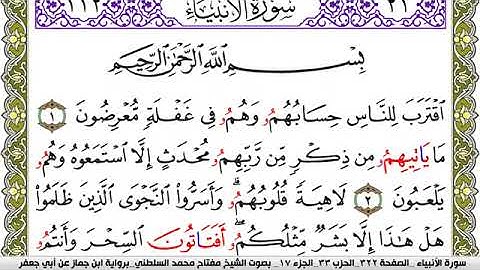 ١١٢ سُورَةُ الْأَنْبِيَاءِ ٢١
بِسْمِ اللَّهِ الرَّحْمَٰنِ الرَّحِيمِ
اَقْتَرَبَ لِلنَّاسِ حِسَابُهُمُۥ وَهُمُۥ فِي غَفْلَةٍ مُّعْرِضُونَ ١
مَا يَاتِيهِمُۥ مِن ذِكْرٍ مِّن رَّبِّهِمُۥ مُحْدَثٍ إِلَّا اَسْتَمَعُوهُ وَهُمُۥ
يَلْعَبُونَ ٢ لَاهِيَةً قُلُوبُهُمُۥ وَأَسَرُّوا النَّجْوَى الَّذِينَ ظَلَمُوا
هَلْ هَٰذَا إِلَّا بَشَرٌ مِّثْلُكُمُۥ أَفَتَاتُونَ السِّحْرَ وَأَنتُمُۥ
سورة الأنبياء _ الصفحة ٣٢٢_ الحزب ٣٣_ الجزء ١٧_ بصوت الشيخ مفتاح محمد السلطني_ برواية ابن جماز عن أبي جعفر